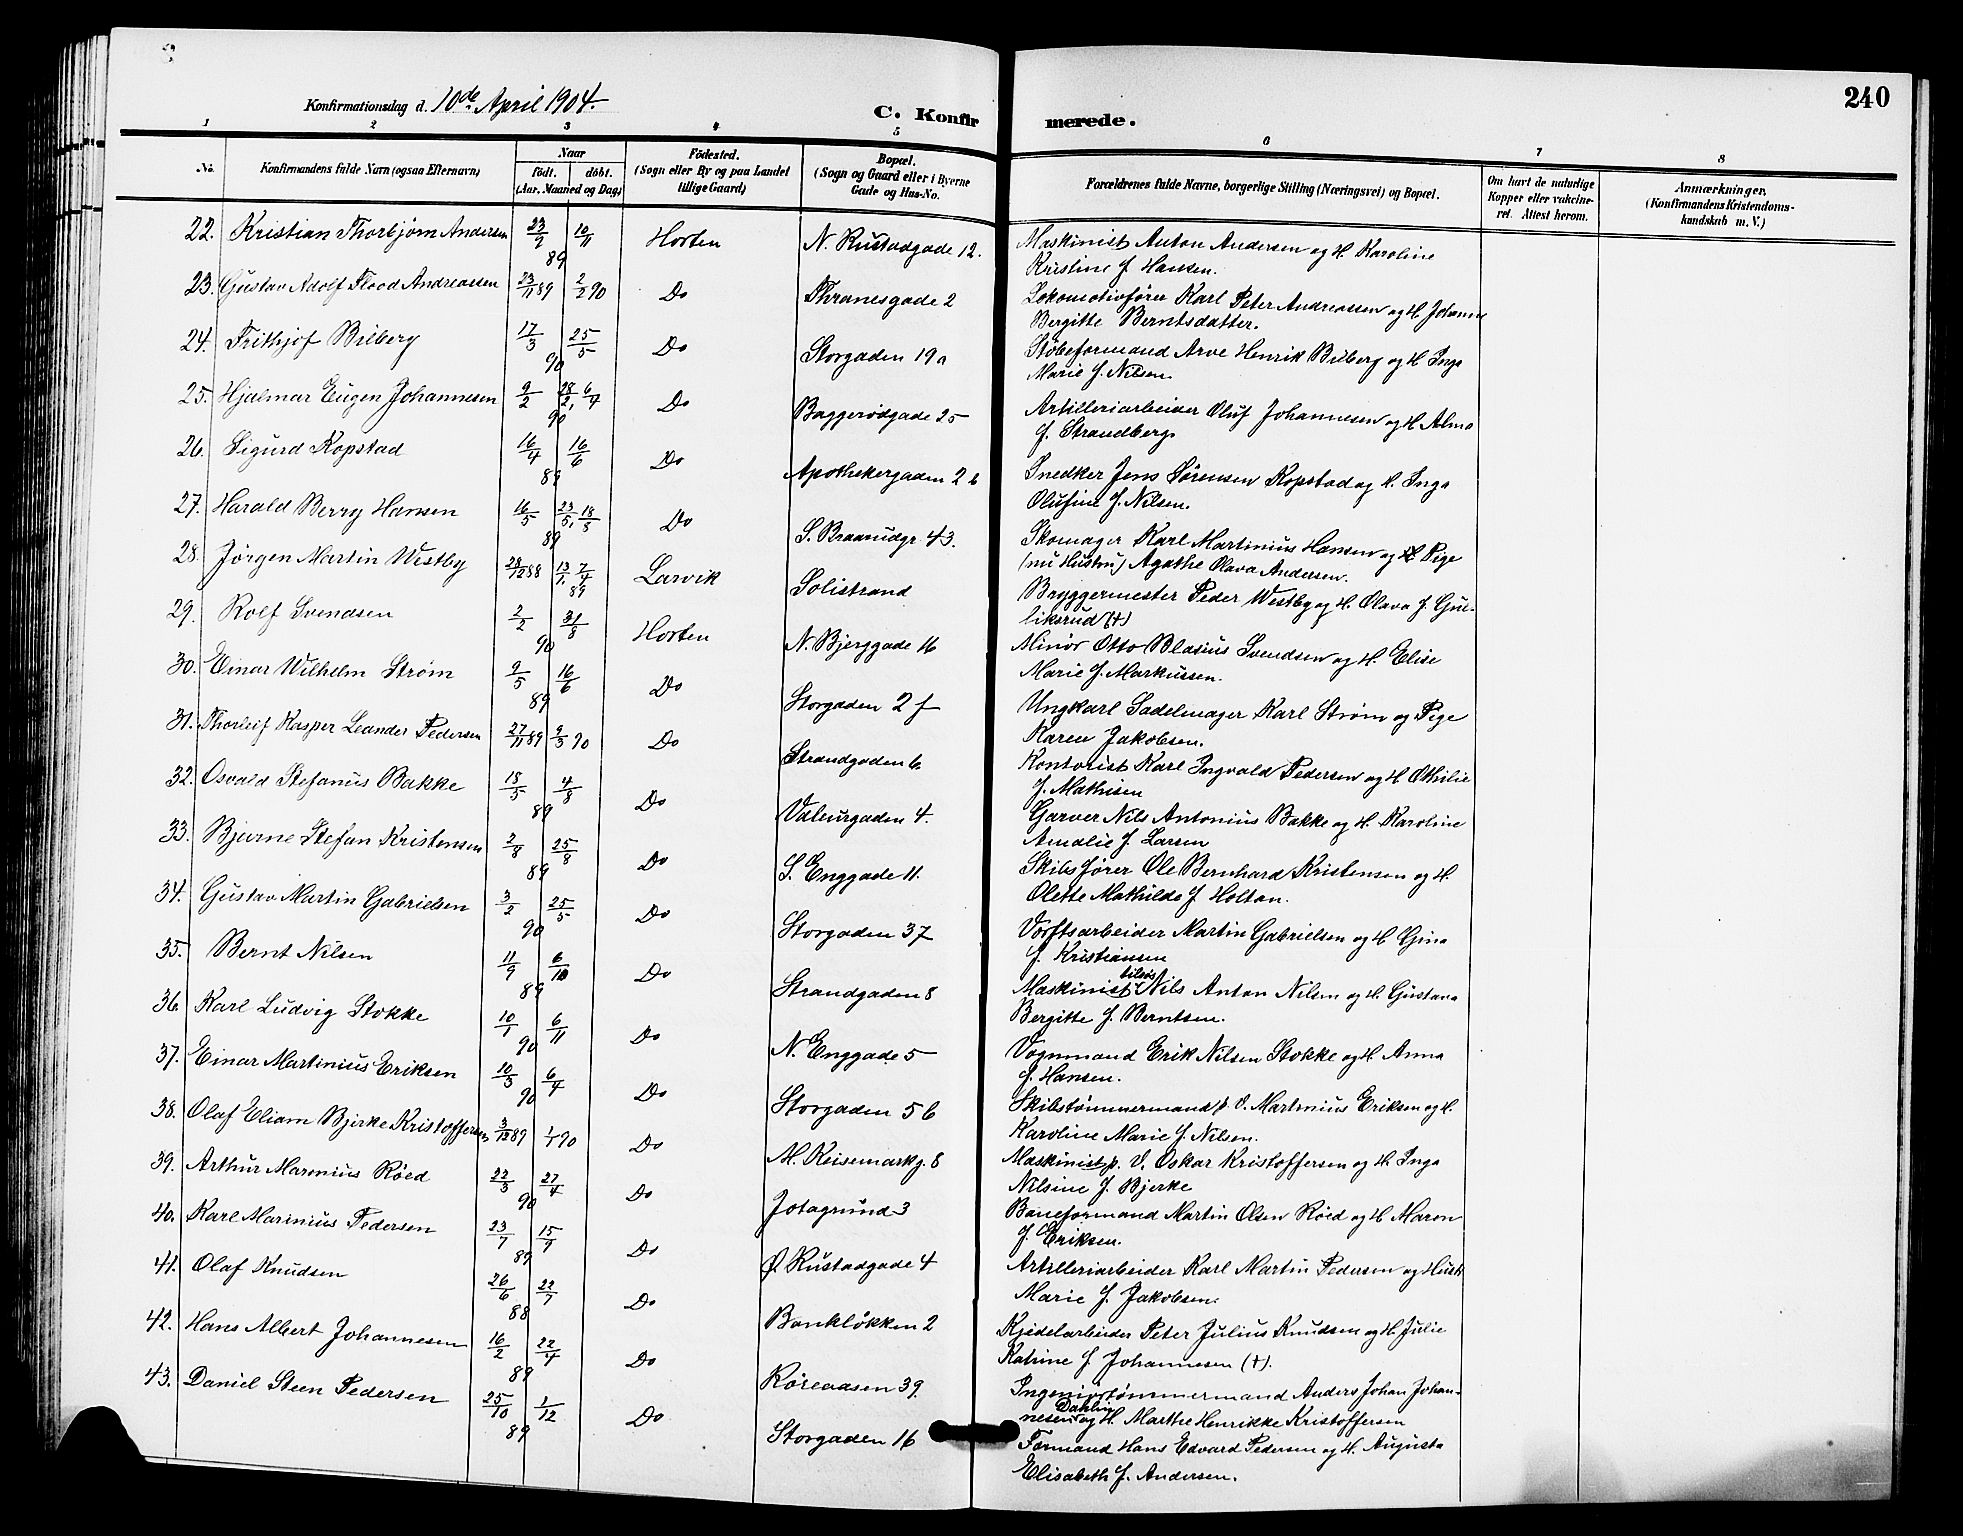 240
Konfirmationsdag d. 10de April 1904.
C. Konfirmerede.
1 2 3 4 5 6 7 8
No.
Konfirmandens fulde Navn (ogsaa Efternavn)
Naar
födt. döbt.
(Aar, Maaned og Dag)
Födested.
(Sogn eller By og paa Landet
tillige Gaard)
Bopæl.
(Sogn og Gaard eller i Byerne
Gade og Hus-No.
Forældrenes fulde Navne, borgerlige Stilling (Næringsvei) og Bopæl.
Om havt de naturlige
Kopper eller vakcine-
ret. Attest herom.
Anmærkninger,
(Konfirmandens Kristendoms-
kundskab m. V.)
22. Kristian Thorbjørn Andersen 23/9 10/11 89 Horten N. Rustadgade 12. Maskinist Anton Andersen og H. Karoline
Kristine f. Hansen.
23. Gustav Adolf Flood Andreassen 23/11 89 2/2 90 Do Thranesgade 2 Lokomotivfører Karl Peter Andreassen og H. Johanne
Bergitte Berntsdatter.
24. Frithjof Bilberg 17/3 25/5 90 Do Storgaden 19a Støbeformand Arve Henrik Bilberg og H. Inga
Marie f. Nilsen.
25. Hjalmar Eugen Johannesen 9/2 28/2, 6/4 90 Do Baggerødgade 25 Artilleriarbeider Oluf Johannesen og H. Alma
f. Strandberg
26. Sigurd Kopstad 16/4 16/6 89 Do Apothekergaden 2b Snedker Jens Sørensen Kopstad og H. Inga
Olufine f. Nilsen.
27. Harald Berry Hansen 16/5 23/5, 18/8 89 Do S. Braarudgr. 43. Skomager Karl Martinius Hansen og Pige
(nu Hustru) Agathe Olava Andersen.
28. Jørgen Martin Westby 28/12 88 13/1, 7/4 89 Larvik Solistrand Bryggermester Peder Westby og H. Olava f. Gul-
liksrud (+)
29. Rolf Svendsen 2/2 31/8 90 Horten N. Bjerggade 16 Minør Otto Blasius Svendsen og H. Elise
Marie f. Markussen.
30. Einar Wilhelm Strøm 9/5 16/6 89 Do Storgaden 2f Ungkarl Sadelmager Karl Strøm og Pige
Karen Jakobsen.
31. Thorleif Kasper Leander Pedersen 27/11 89 9/3 90 Do Strandgaden 6. Kontorist Karl Ingvald Pedersen og H. Othilie
f. Mathisen
32. Osvald Stefanus Bakke 18/5 4/8 89 Do Valeurgaden 4. Garver Nils Antonius Bakke og H. Karoline
Amalie f. Larsen
33. Bjarne Stefan Kristensen 2/8 25/8 89 Do S. Enggade 11. Skibsfører Ole Bernhard Kristensen og H.
Olette Mathilde f. Holtan.
34. Gustav Martin Gabrielsen 3/2 25/5 90 Do Storgaden 37 Værftsarbeider Martin Gabrielsen og H. Gina
f. Kristiansen
35. Bernt Nilsen 11/9 6/10 89 Do Strandgaden 8 Maskinist tilsøs Nils Anton Nilsen og H. Gustava
Bergitte f. Berntsen.
36. Karl Ludvig Stokke 10/1 6/11 90 Do N. Enggade 5 Vognmand Erik Nilsen Stokke og H. Anna
f. Hansen.
37. Einar Martinius Eriksen 10/3 6/4 90 Do Storgaden 5b Skibstømmermand p. V. Martinius Eriksen og H.
Karoline Marie f. Nilsen.
38. Olaf Eliam Bjerke Kristoffersen 3/12 89 1/1 90 Do M. Keisemarkg. 8 Maskinist p. V. Oskar Kristoffersen og H. Inga
Nilsine f. Bjerke
39. Arthur Marenius Røed 22/3 27/4 90 Do Jotagrund 3 Baneformand Martin Olsen Røed og H. Maren
f. Eriksen.
40. Karl Marinius Pedersen 23/7 15/9 89 Do Ø. Rustadgade 4 Artilleriarbeider Karl Martin Pedersen og Hust.
Marie f. Jakobsen.
41. Olaf Knudsen 26/6 22/7 88 Do Bankløkken 2 Kjedelarbeider Peter Julius Knudsen og H. Julie
Katrine f. Johannesen (+).
42. Hans Albert Johannesen 16/2 22/4 89 Do Røreaasen 39. Ingeniørtømmermand Anders Johan Johan-
nesen Dahlin og H. Marthe Henrikke Kristoffersen
43. Daniel Steen Pedersen 25/10 1/12 89 Do Storgaden 16 Formand Hans Edvard Pedersen og H. Augusta
Elisabeth f. Andersen.